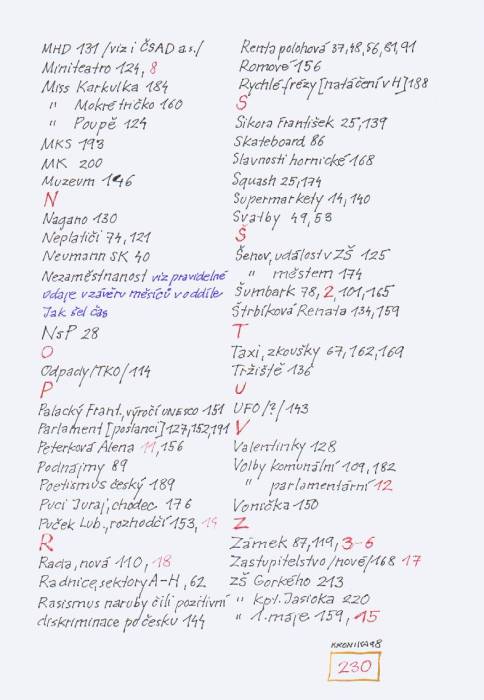 MHD 131 /viz i ČSAD a.s./
Miniteatro 124, 8
Miss Karkulka 184
" Mokré tričko 160
" Poupě 124
MKS 193
MK 200
Muzeum 146
N
Nagano 130
Neplatiči 74, 121
Neumann SK 40
Nezaměstnanost viz pravidelné
údaje v závěru měsíců v oddíle
Jak šel čas
NsP 28
O
Odpady/TKO/ 114
P
Palacký Frant., výročí UNESCO 151
Parlament [poslanci] 127,152,191
Peterková Alena 11, 156
Podnájmy 89
Poetismus český 189
Puci Juraj, chodec 176
Puček Lub., rozhodčí 153, 19
R
Rada, nová 110, 18
Radnice, sektory A-H, 62
Rasismus naruby čili pozitivní
diskriminace po česku 144
Renta polohová 37,48,56,81,91
Romové 156
Rychlé frézy [natáčení v H] 188
S
Sikora František 25,139
Skateboard 86
Slavnosti hornické 168
Squash 25,174
Supermarkety 14, 140
Svatby 49,53
Š
Šenov, událost v ZŠ 125
" městem 174
Šumbark 78, 2, 101, 165
Štrbíková Renata 134, 159
T
Taxi, zkoušky 67, 162, 169
Tržiště 136
U
UFO /?/ 143
V
Valentinky 128
Volby komunální 109, 182
" parlamentární 12
Vonička 150
Z
Zámek 87, 119, 3-6
Zastupitelstvo /nové/ 168 17
ZŠ Gorkého 213
" kpt. Jasioka 220
" 1. máje 159, 15
KRONIKA 98
230